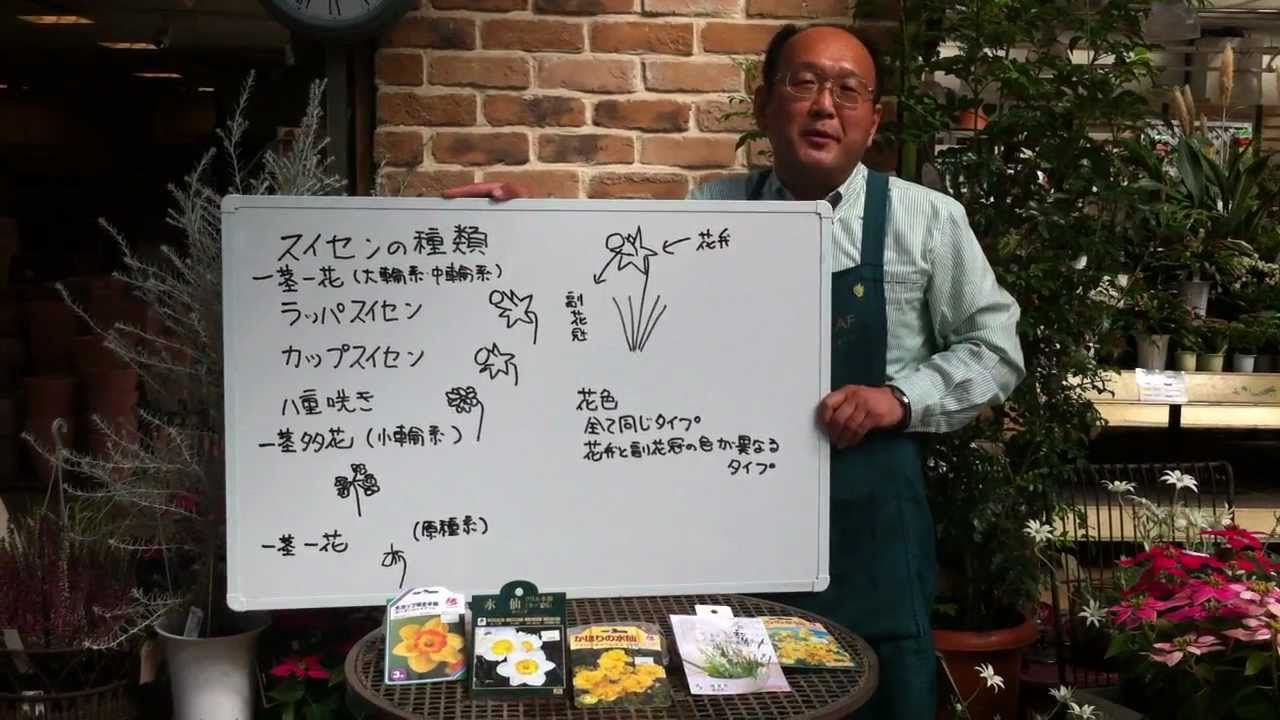 スイセンの種類
一茎一花(大輪系・中輪系)
ラッパスイセン
カップスイセン
八重咲き
一茎多花(小輪系)
一茎一花 (原種系)
花弁
副花冠
花色
全て同じタイプ
花弁と副花冠の色が異なる
タイプ
AF
水仙
かほりの水仙